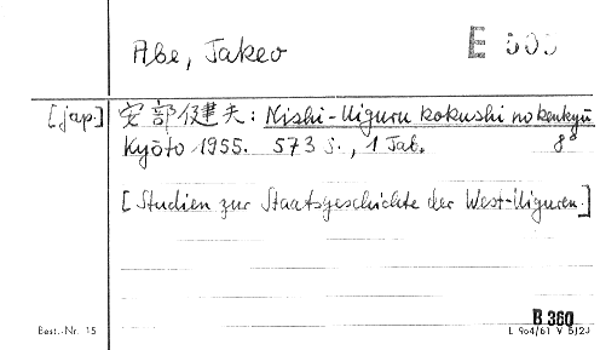 Abe, Takeo
E 505
[jap.] 安部健夫: Nishi-Uiguru kokushi no kenkyū
Kyōto 1955. 573 S., 1 Tab. 8°
[Studien zur Staatsgeschichte der West-Uiguren.]
B 360
Best.-Nr. 15
L 904/61 V 5/23